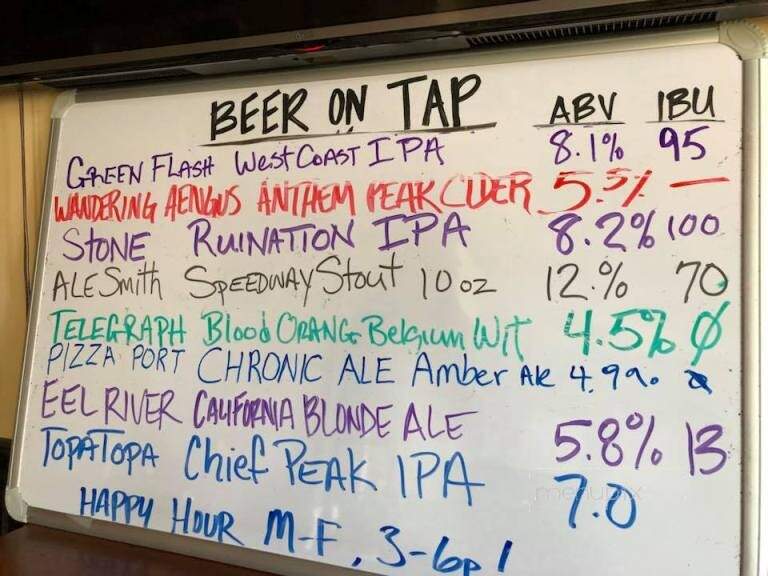 BEER ON TAP ABV IBU
GREEN FLASH West COAST IPA 8.1% 95
WANDERING AENGUS ANTHEM PEAR CIDER 5.5% —
STONE RUINATION IPA 8.2% 100
ALESmith SPEEDWAY Stout 10 oz 12.% 70
TELEGRAPH Blood ORANGE Belgium Wit 4.5% Ø
PIZZA PORT CHRONIC ALE Amber Ale 4.9%
EEL RIVER CALIFORNIA BLONDE ALE 5.8% 13
TOPA TOPA Chief PEAK IPA 7.0
HAPPY HOUR M-F, 3-6p